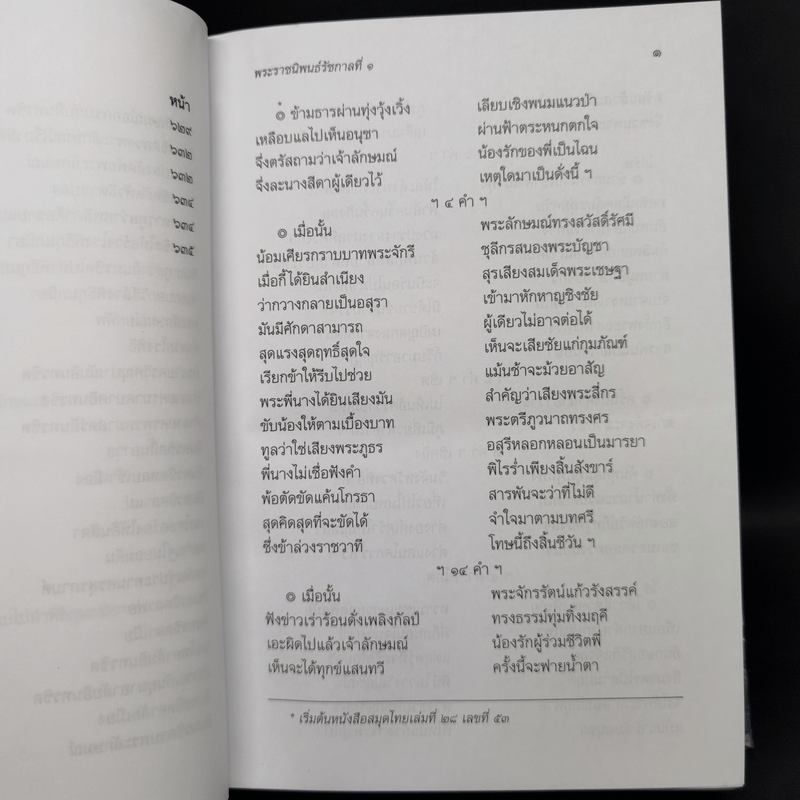 หน้า
๖๒๙
๖๓๒
๖๓๒
๖๓๔
๖๓๔
๖๓๕
พระราชนิพนธ์รัชกาลที่ ๑ ๑
๏ ข้ามธารผ่านทุ่งวุ้งเวิ้ง เลียบเชิงพนมแนวป่า
เหลือบแลไปเห็นอนุชา ผ่านฟ้าตระหนกตกใจ
จึ่งตรัสถามว่าเจ้าลักษมณ์ น้องรักของพี่เป็นไฉน
จึ่งละนางสีดาผู้เดียวไว้ เหตุใดมาเป็นดั่งนี้ ฯ
ฯ ๔ คำ ฯ
๏ เมื่อนั้น พระลักษมณ์ทรงสวัสดิ์รัศมี
น้อมเศียรกราบบาทพระจักรี ชุลีกรสนองพระบัญชา
เมื่อกี้ได้ยินสำเนียง สุรเสียงสมเด็จพระเชษฐา
ว่ากวางกลายเป็นอสุรา เข้ามาหักหาญชิงชัย
มันมีศักดาสามารถ ผู้เดียวไม่อาจต่อได้
สุดแรงสุดฤทธิ์สุดใจ เห็นจะเสียชัยแก่กุมภัณฑ์
เรียกข้าให้รีบไปช่วย แม้นช้าจะม้วยอาสัญ
พระพี่นางได้ยินเสียงมัน สำคัญว่าเสียงพระสี่กร
ขับน้องให้ตามเบื้องบาท พระตรีภูวนาถทรงศร
ทูลว่าใช่เสียงพระภูธร อสุรีหลอกหลอนเป็นมารยา
พี่นางไม่เชื่อฟังคำ พิไรร่ำเพียงสิ้นสังขาร์
พ้อตัดขัดแค้นโกรธา สารพันจะว่าที่ไม่ดี
สุดคิดสุดที่จะขัดได้ จำใจมาตามบทศรี
ซึ่งข้าล่วงราชวาที โทษนี้ถึงสิ้นชีวัน ฯ
ฯ ๑๔ คำ ฯ
๏ เมื่อนั้น พระจักรรัตน์แก้วรังสรรค์
ฟังข่าวเร่าร้อนดั่งเพลิงกัลป์ ทรงธรรม์ทุ่มทิ้งมฤคี
เอะผิดไปแล้วเจ้าลักษมณ์ น้องรักผู้ร่วมชีวิตพี่
เห็นจะได้ทุกข์แสนทวี ครั้งนี้จะฟายน้ำตา
* เริ่มต้นหนังสือสมุดไทยเล่มที่ ๒๘ เลขที่ ๕๓